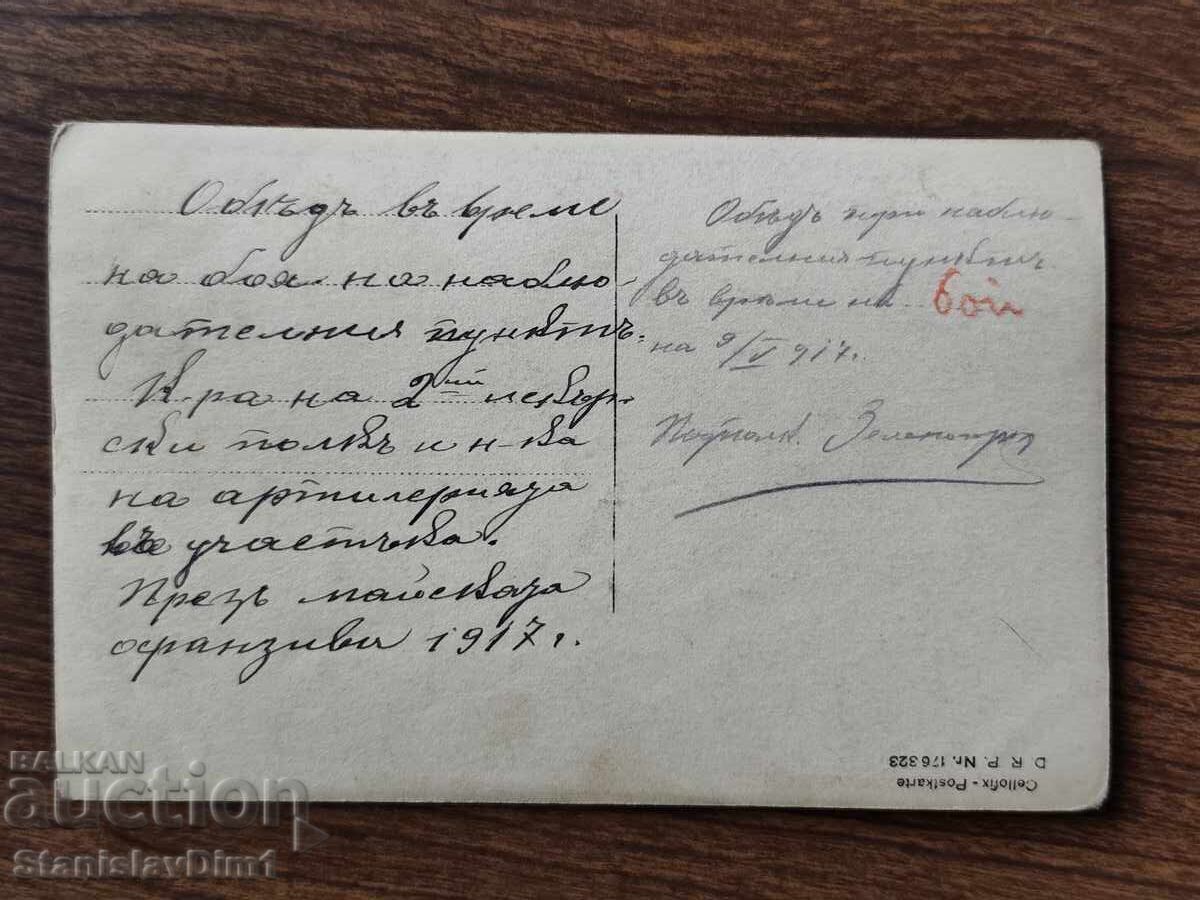 Обѣдъ въ време
на боя на наблю-
дателния пунктъ.
К-ра на 2ий
ски полкъ и н-ка
на артилерията
въ участъка.
Презъ майската
офанзива 1917 г.
Обѣдъ при наблю-
дателния пунктъ
въ време на бой
на 9/V 917 г.
Подполк.
Cellofix - Postkarte
D R P. Nr. 176323
BALKAN
auction
StanislavDim1